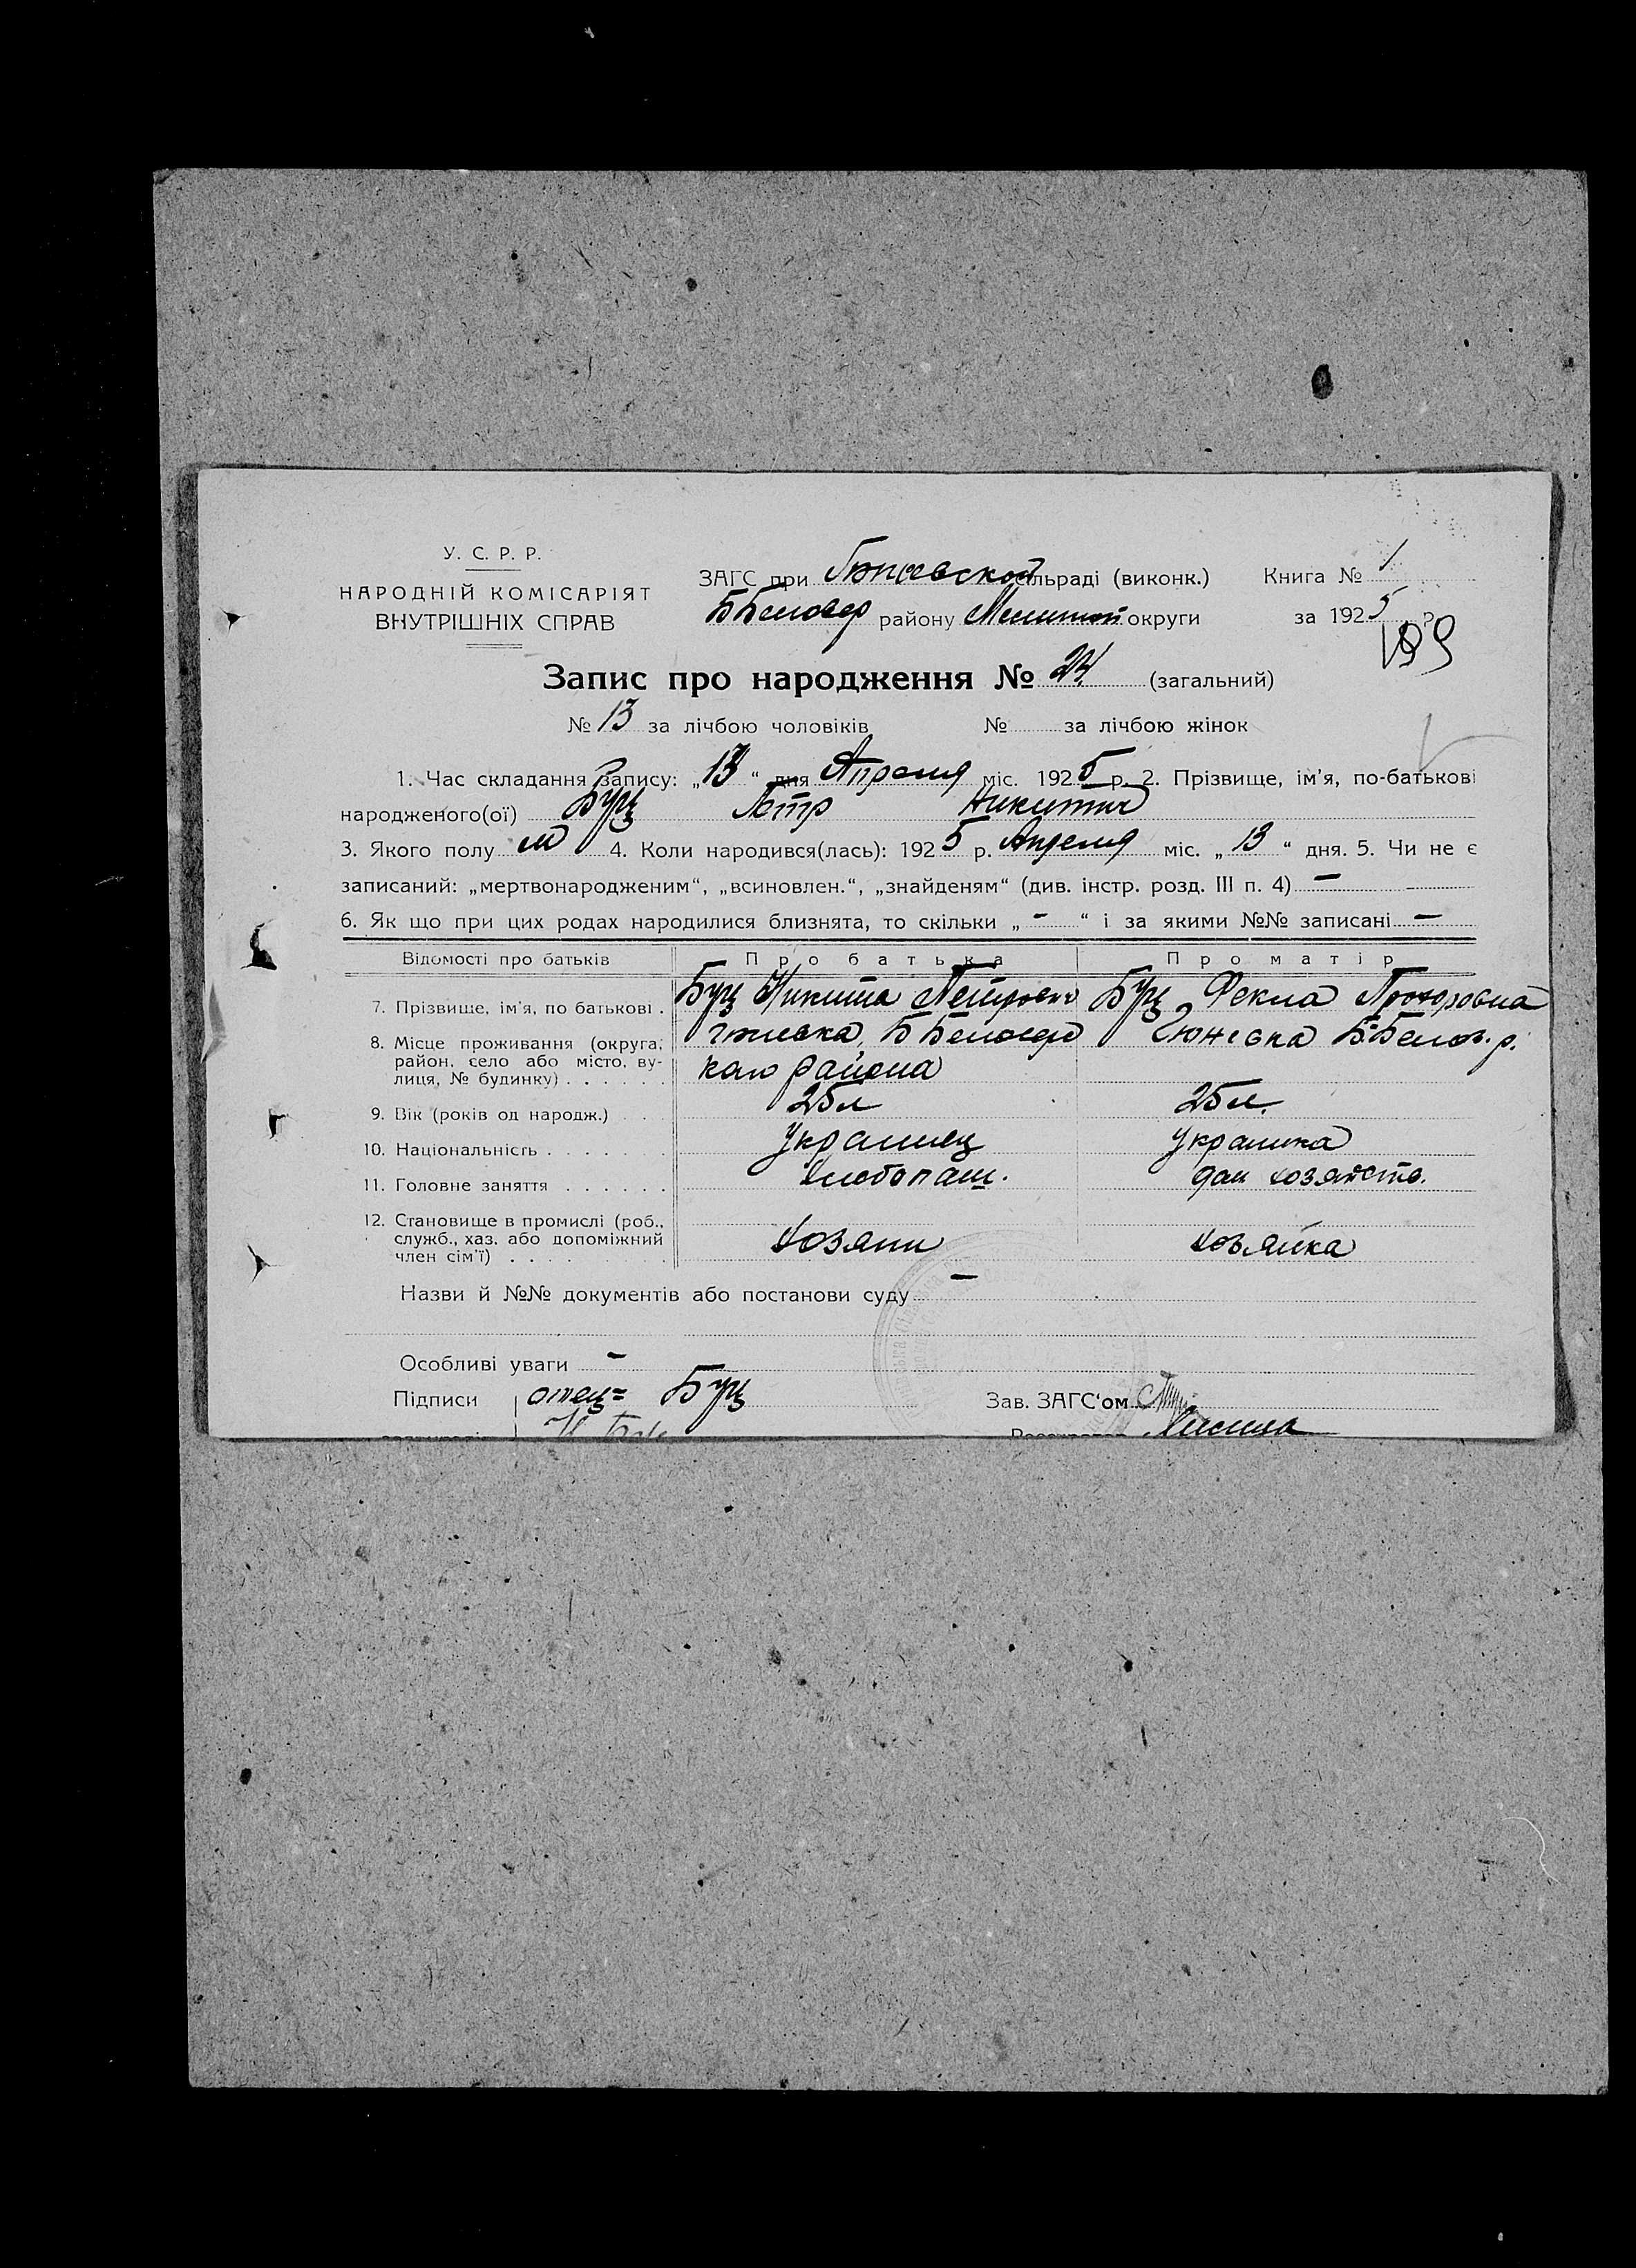 У. С. Р. Р.
НАРОДНІЙ КОМІСАРІЯТ
ВНУТРІШНІХ СПРАВ
ЗАГС при сільраді (виконк.) Книга № 1
ББелозер району Мелитоп округи за 1925 р.
199
Запис про народження № 24 (загальний)
№ 13 за лічбою чоловіків № за лічбою жінок
1. Час складання запису: „13“ дня Апреля міс. 1925 р. 2. Прізвище, ім'я, по-батькові
народженого(ої) Буц Петр Никитич
3. Якого полу м 4. Коли народився(лась): 1925 р. Апреля міс. „13“ дня. 5. Чи не є
записаний: „мертвонародженим“, „всиновлен.“, „знайденям“ (див. інстр. розд. III п. 4) —
6. Як що при цих родах народилися близнята, то скільки „ - “ і за якими №№ записані —
Відомості про батьків Про батька Про матір
7. Прізвище, ім'я, по батькові . Буц Никита Петрович Буц Фекла Прохоровна
8. Місце проживання (округа, район, село або місто, вулиця, № будинку) . . . . . . Б Белозер
кого района Б-Белоз. р.
9. Вік (років од народж.) . . . 25 л 25 л.
10. Національність . . . . . . . Украинец Украинка
11. Головне заняття . . . . . . хлебопаш. дом хозяйство.
12. Становище в промислі (роб., служб., хаз. або допоміжний член сім'ї) . . . . . . . . Хозяин хозяйка
Назви й №№ документів або постанови суду —
Особливі уваги -
Підписи отец= Буц Зав. ЗАГС'ом